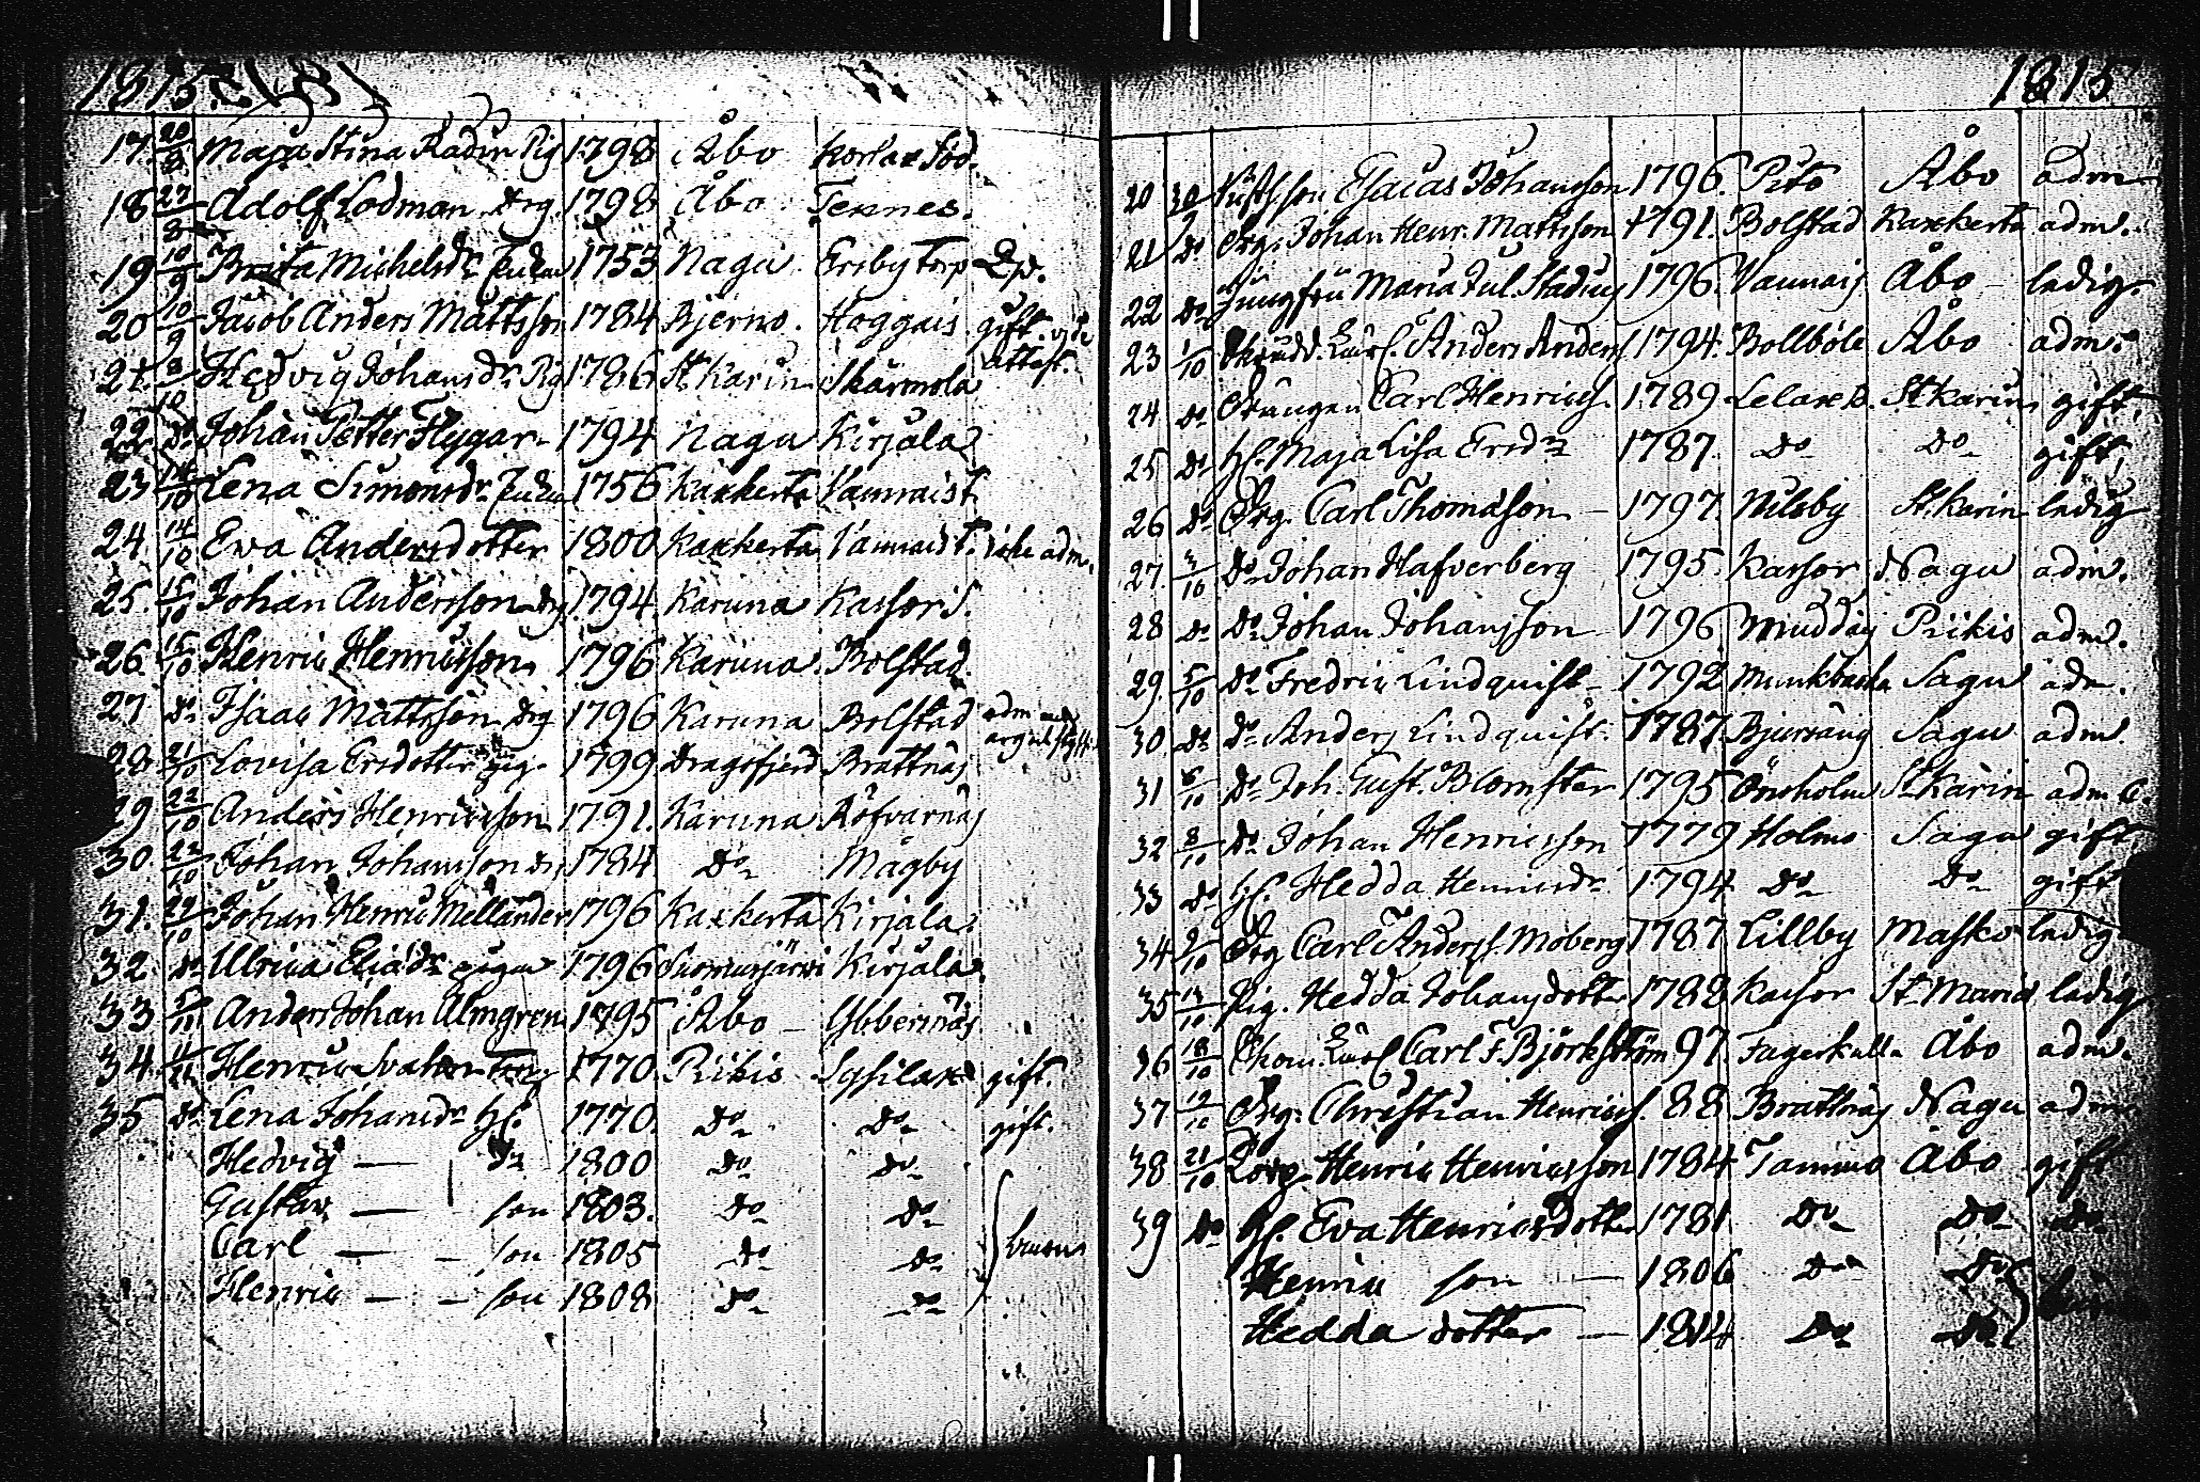 1815
17. 20/8 Maja Stina Radin Pig 1798 Åbo Korlax Söd.
18 27/8 Adolf Lodman drg. 1798 Åbo Tennes.
19 10/9 Brita Michelsdr 1753 Nagu Ersby torp
20 10/9 Jacob Anders Mattsson 1784 Bjerno. Haggais. gift
attest.
21. 8/10 Hedvig Johansdr Pig 1786 St Karin Skärmola
22 do Johan Petter Flygar 1794 Nagu Kirjala
23 14/10 Lena Simonsdr 1756 Kaxkerta Vannaist.
24. 14/10 Ewa Andersdotter 1800 Kaxkerta Vannaist. icke adm.
25. 15/10 Johan Andersson drg 1794 Karuna Kassor S.
26. 15/10 Henric Henricsson 1796 Karuna Bolstad
27 do Isaac Mattsson drg 1796 Karuna Bolstad adm
28 21/10 Lovisa Ersdotter pig. 1799 Dragsfjerd Brattnäs
29 22/10 Anders Henricsson 1791. Karuna Röfvarnäs
30. 22/10 Johan Johansson drg 1784 do Mågby
31. 29/10 Johan Henric Mellander 1796 Kaxkerta Kirjala.
32 do Ulrica Eliædr pigan 1796 Kirjala
33 5/11 Anders Johan Almgren 1795 Åbo – Gibbernäs
34. 11/11 Henric 1770. Pikis Sysilax gift.
35 do Lena Johansdr H. 1770. do do gift.
Hedvig — dr 1800 do do
Gustav — son 1803. do do
Carl — – son 1805 do do barn
Henric — – son 1808 do do
1815
20 30/9 Esaias Johansson 1796. Pito Åbo adm
21 do Drg. Johan Henr. Mattsson 1791. Bolstad Kaxkerta adm.
22 do Jungfru Maria Jul. Stadius 1796. Vannais Åbo – ledig.
23 1/10 Skrädd. Lärl. Anders Anders 1794. Bollböle Åbo adm.
24 do Drängen Carl Henricss. 1789 Lelax B. St Karin gift.
25 do H. Maja Lisa Ersdr 1787. do do gift
26 do Drg. Carl Thomasson – 1797. Nilsby St Karin ledig
27. 3/10 do Johan Hafverberg 1795. Kassor Nagu adm.
28 do do Johan Johansson 1796 Muddais Piikis adm.
29. 5/10 do Fredric Lindquist – 1792 Munkbacka Sagu adm.
30. do do Anders Lindquist. 1787. Bjursäng Sagu adm.
31 6/10 do Joh. Gust. Blomster 1795 Önsholm St Karin adm
32 8/10 do Johan Henricsson 1779 Holmo Sagu gift
33 do H. Hedda Henricsdr 1794 do do gift
34 9/10 Drg Carl Anderss. Moberg 1787. Lillby Masko ledig
35 13/10 Pig. Hedda Johansdotter 1788 Kassor St Maria ledig
36 18/10 Lärl Carl F. Björkström 97. Fagerkulla Åbo adm.
37 19/10 Drg. Christian Henricss. 88. Brattnäs Nagu adm
38 21/10 Torp. Henric Henricsson 1784 Tammo Åbo gift
39 do H. Eva Henricsdotter 1781 do do do
Henric son — 1806 do do
Hedda dotter — 1814 do do